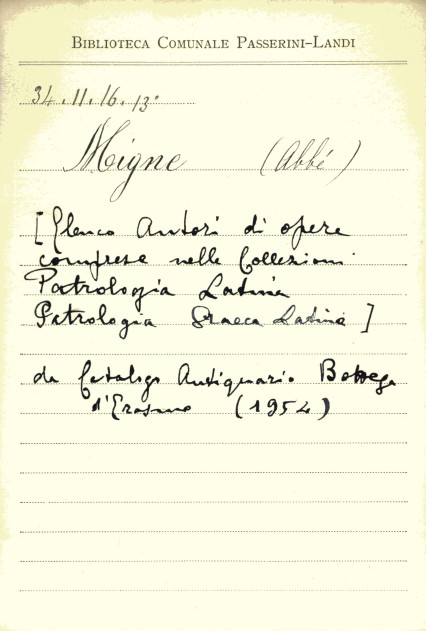 BIBLIOTECA COMUNALE PASSERINI-LANDI
34.11.16.13°
Migne (Abbé)
[Elenco Autori di opere
comprese nelle Collezioni
Patrologia Latina
Patrologia Graeca Latina]
da Catalogo Antiquario Bottega
d'Erasmo (1954)